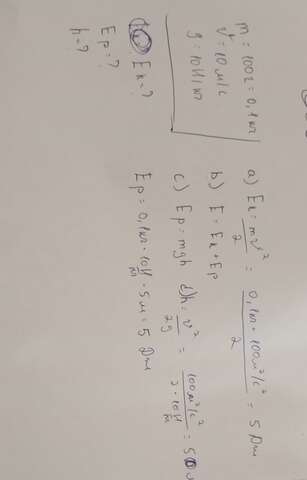 m = 100г = 0,1кг
v = 10 м/с
g = 10Н/кг
Eк = ?
Eр = ?
h = ?
a) Eк = mv²/2 = 0,1кг · 100м²/с²/2 = 5 Дж
b) E = Eк + Eр
c) Eр = mgh d) h = v²/2g = 100м²/с²/2 · 10Н/кг = 5 м
Eр = 0,1кг · 10Н/кг · 5м = 5 Дж